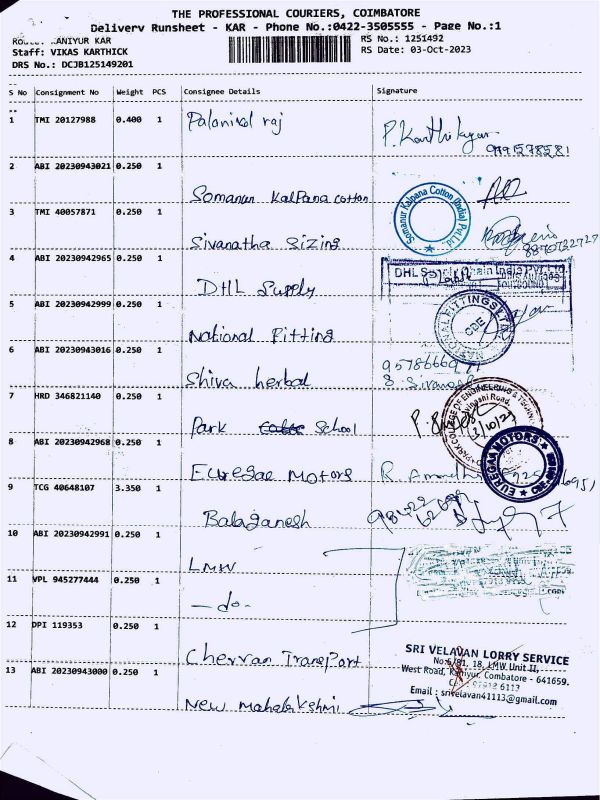 THE PROFESSIONAL COURIERS, COIMBATORE
Delivery Runsheet - KAR - Phone No.:0422-3505555 - Page No.:1
KANIYUR KAR
RS No.: 1251492
Staff: VIKAS KARTHICK
RS Date: 03-Oct-2023
DRS No.: DCJB125149201
S No Consignment No Weight PCS Consignee Details Signature
1 TMI 20127988 0.400 1
P. Karthikeyan
2 ABI 20230943021 0.250 1
Somanur Kalpana cotton
Somanur Kalpana Cotton (India) Pvt Ltd.
3 TMI 40057871 0.250 1
Sivanatha Sizing
8870722727
4 ABI 20230942965 0.250 1
DHL Supply
DHL Supply Chain India Pvt. Ltd.
5 ABI 20230942999 0.250 1
National Fitting
NATIONAL FITTINGS LTD.
6 ABI 20230943016 0.250 1
Shiva herbal
7 HRD 346821140 0.250 1
Park School
PARK COLLEGE OF ENGINEERING &
3/10/23
8 ABI 20230942968 0.250 1
Euregae Motors
EUREGAA MOTORS
9 TCG 40648107 3.350 1
Balaganesh
10 ABI 20230942991 0.250 1
LMW
11 VPL 945277444 0.250 1
- do -
12 DPI 119353 0.250 1
Cherran Transport
SRI VELAVAN LORRY SERVICE
No:6/81, 18, LMW Unit II,
West Road, Kaniyur, Combatore - 641659.
6113
Email : srivelavan41113@gmail.com
13 ABI 20230943000 0.250 1
New Mahalakshmi